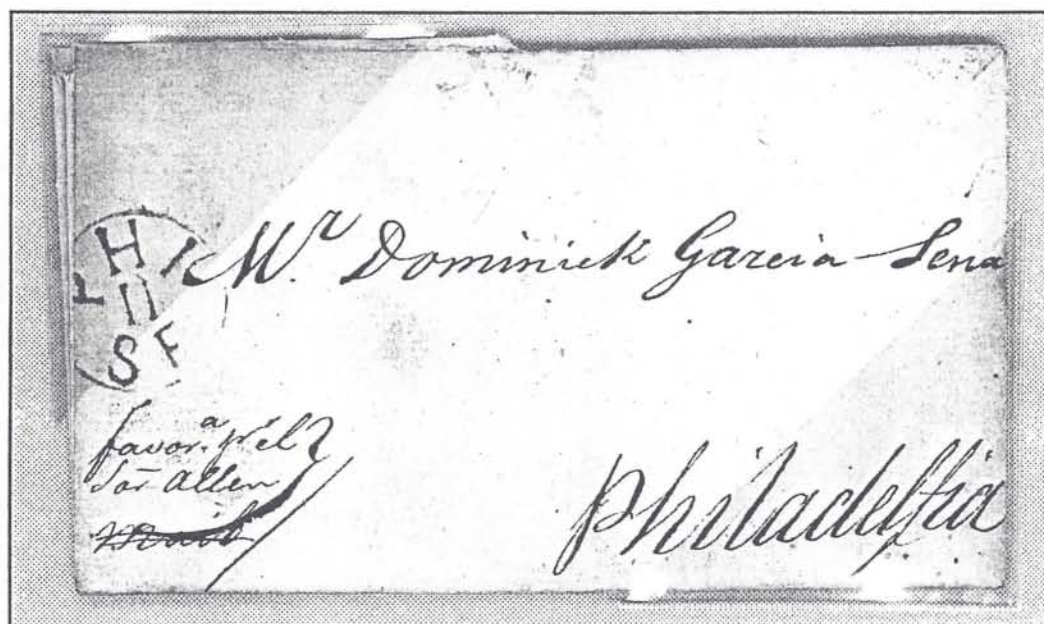 PHI
11
SE
Mr. Dominick Garcia-Sena
favor.a
Sor Allen
Philadelfia